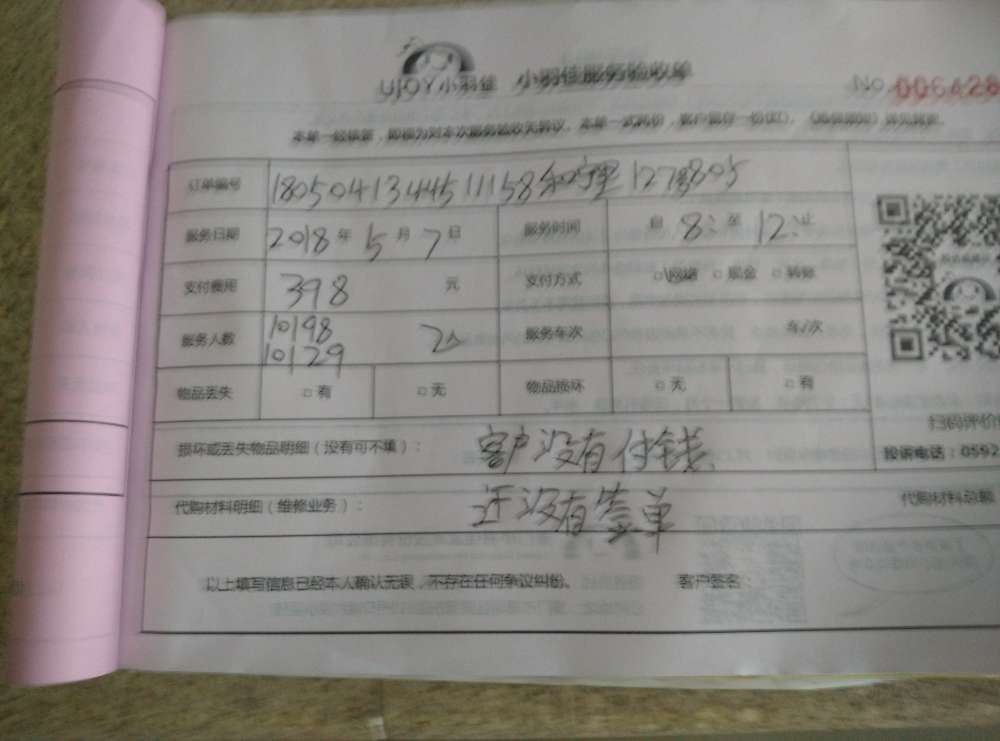 UJOY小羽佳 小羽佳服务验收单
No.
本单一经核签，即视为对本次服务验收无异议。本单一式两份，客户留存一份
订单编号
服务日期 2018 年 5 月 7 日 服务时间 自 8: 至 12: 止
支付费用 398 元 支付方式 □网络 □现金 □转账
服务人数 10198 10129 2人 服务车次 车/次
物品丢失 □有 □无 物品损坏 □无 □有
扫码评价
损坏或丢失物品明细（没有可不填）： 客户没有付钱、
投诉电话：0592
代购材料明细（维修业务）： 还没有签单
代购材料总额
以上填写信息已经本人确认无误，不存在任何争议纠纷。 客户签名：